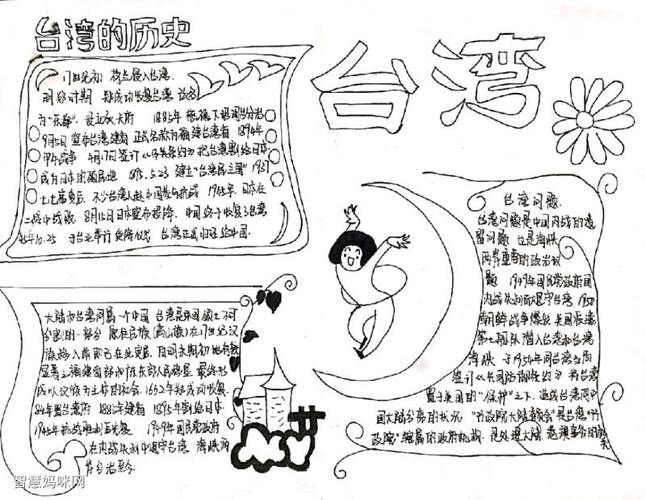 台湾的历史
17世纪初 荷兰侵入台湾.
明郑时期 郑成功收复台湾 改名
为"东都". 设立承天府 1885年
9月5日 宣布台湾建省 正式名称为福建台湾省 1894年
甲午战争 4月17日签订《马关条约》把台湾割给日本
成为日本的殖民地 1895.5.23 建立"台湾民主国" 1937
七七事变后 不少台湾人赴中国参与抗战 1945年 日本在
二战中战败 8月15日日本宣布投降. 中国终于收复了台湾
45年10.25 于台北举行受降仪式 台湾正式归还给中国.
台湾
台湾问题.
台湾问题是中国内战的遗
留问题 也是海峡
两岸重要的政治议
题 1949年国民党政府因
内战失利而退守台湾 1950
朝鲜战争爆发 美国派遣
第七舰队 潜入台湾和台湾
海峡 于1954年同台湾当局
签订《共同防御条约》 将台湾
置于美国的"保护"之下. 造成台湾同中
国大陆分离的状况 "行政院大陆委员会"是台湾"行
政院"辖属的政府机构. 是处理大陆 港澳事务的
大陆和台湾同属一个中国 台湾是中国领土不可
分割的一部分 原住民族(高山族)在17世纪汉
族移入前即已在此定居. 自明末期初
显著之福建南部和广东东部人民移垦 最终形
成以汉族为主体的社会. 1662年郑成功收复.
84年置台湾府 1885年建省 1895年割给日本
1945年抗战胜利后光复 1949年国民党政府
在内战失利中退守台湾 海峡两
岸分治至今
智慧妈咪网